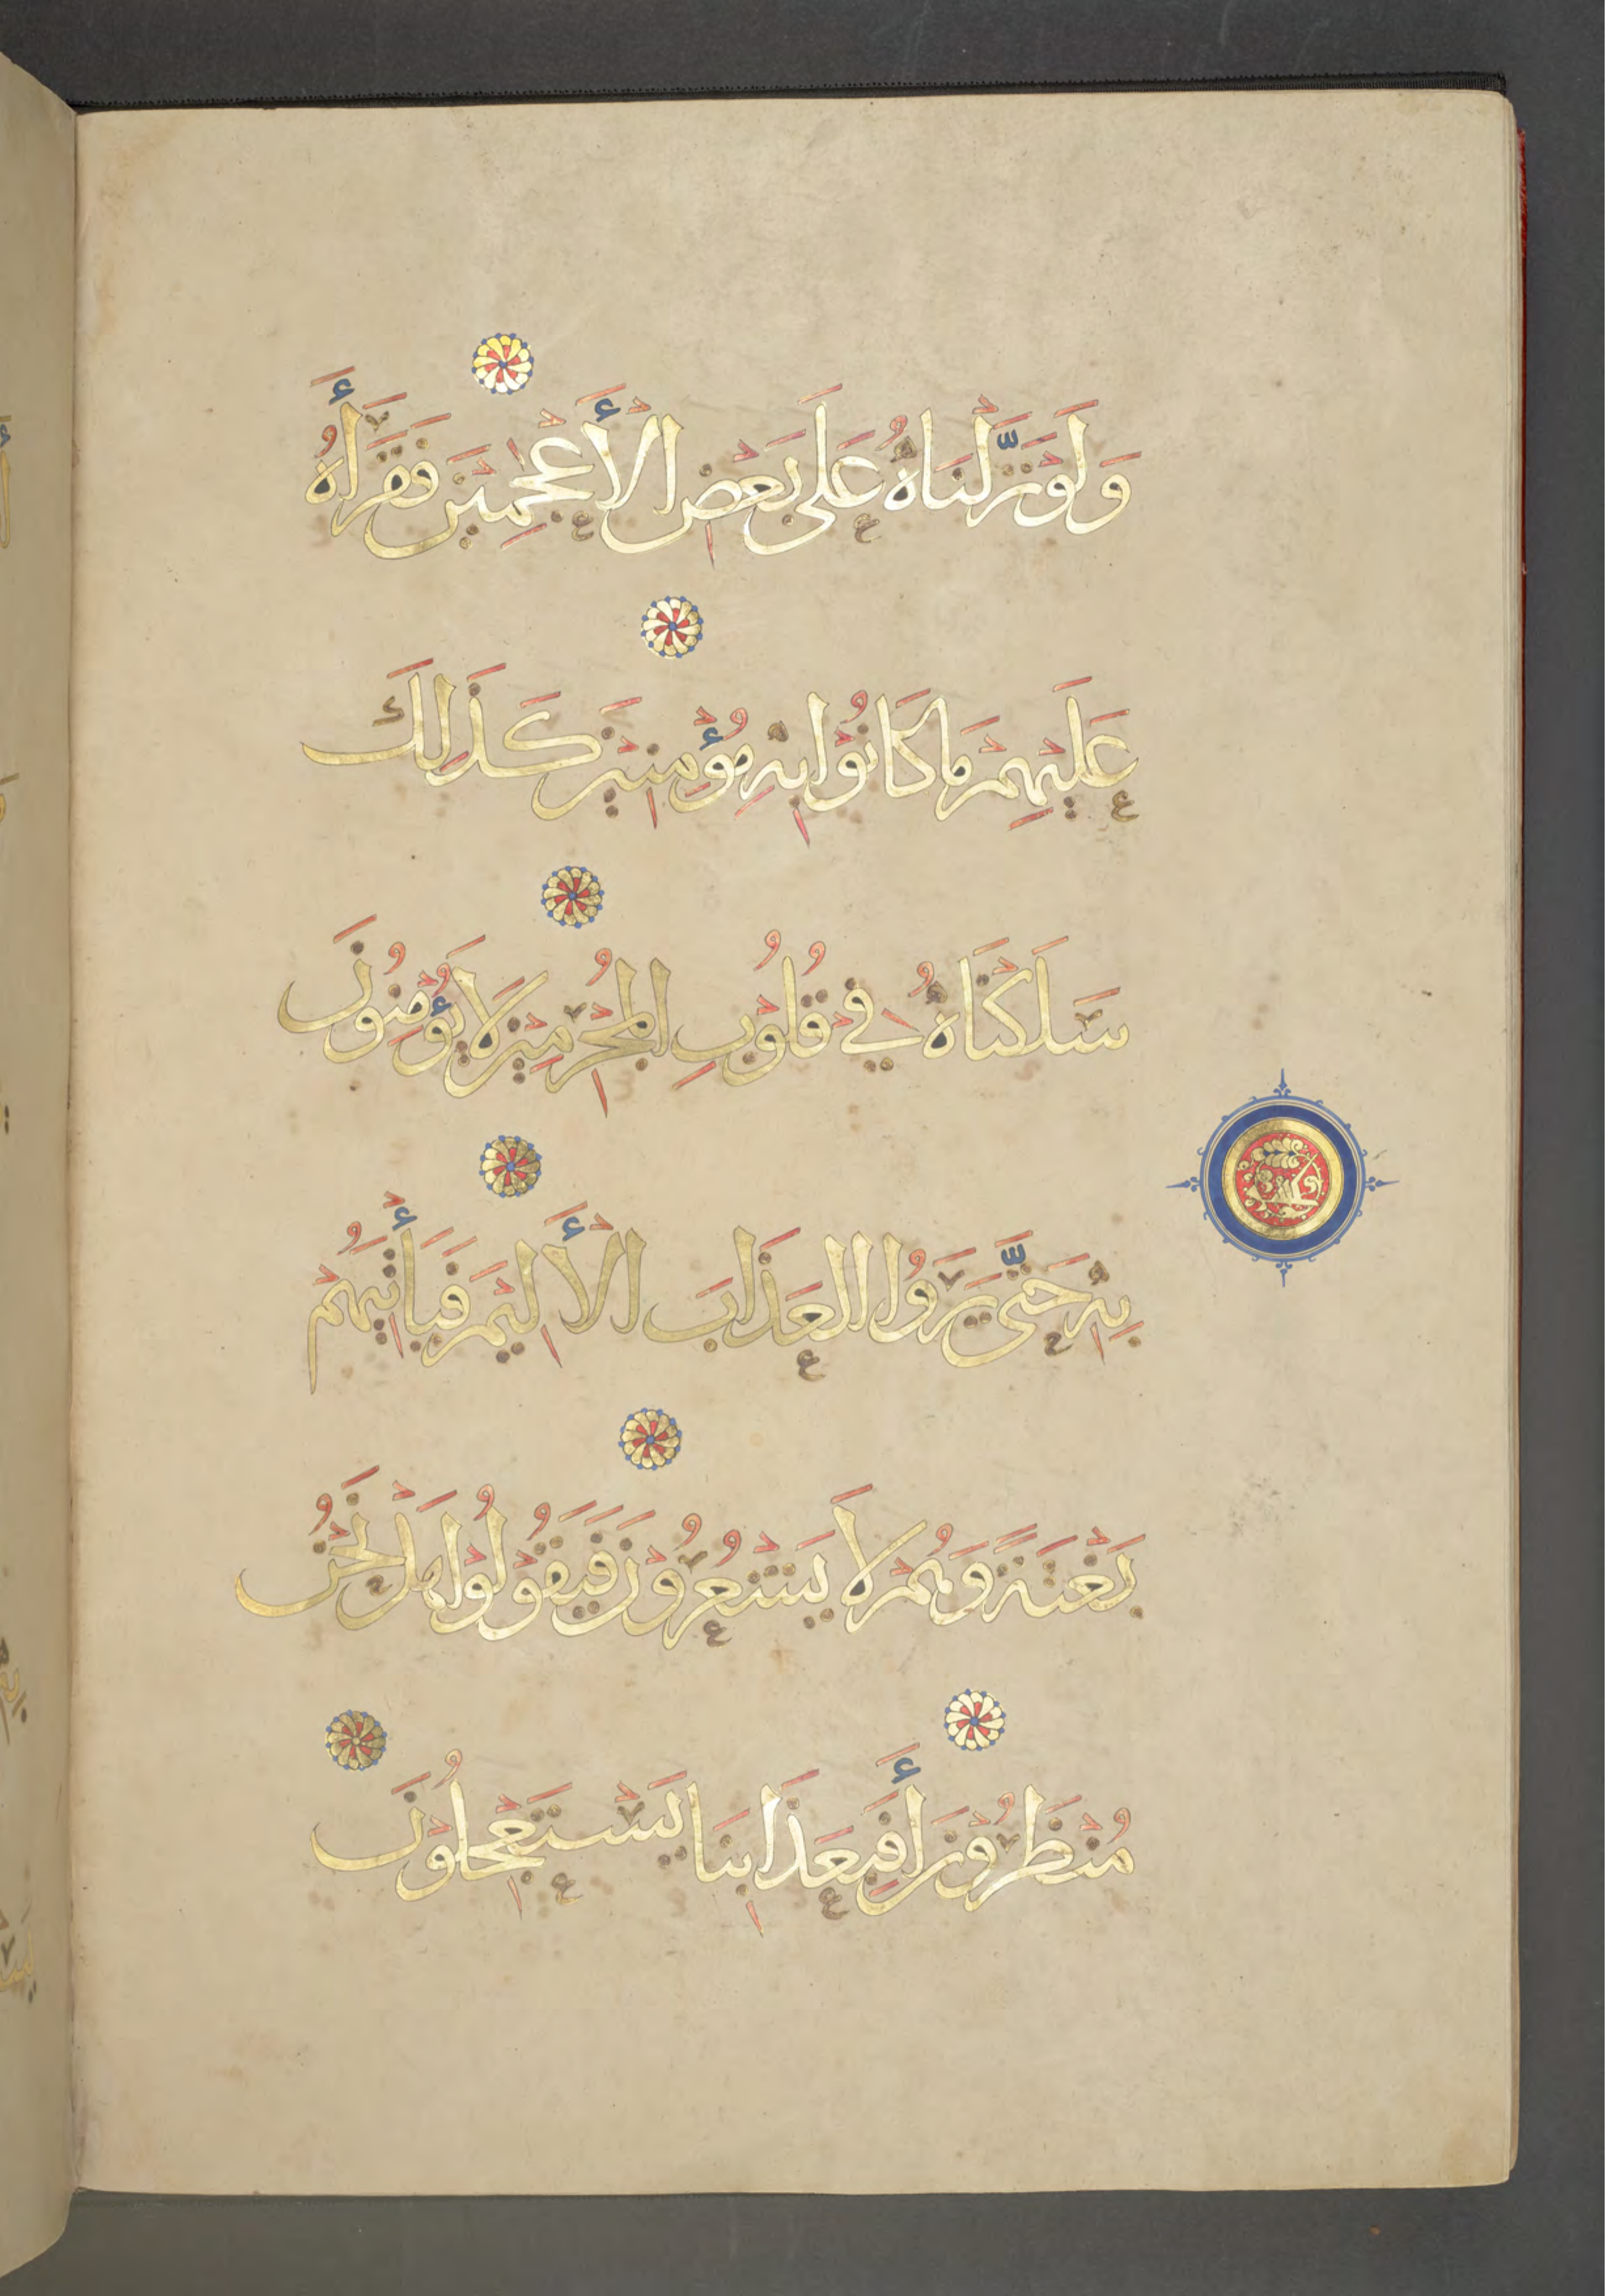 وَلَوْ نَزَّلْنَاهُ عَلَى بَعْضِ الْأَعْجَمِيْنَ فَقَرَأَهُ
عَلَيْهِمْ مَا كَانُوْا بِهِ مُؤْمِنِيْنَ كَذَلِكَ
سَلَكْنَاهُ فِيْ قُلُوْبِ الْمُجْرِمِيْنَ لَا يُؤْمِنُوْنَ
بِهِ حَتَّى يَرَوُا الْعَذَابَ الْأَلِيْمَ فَيَأْتِيَهُمْ
بَغْتَةً وَهُمْ لَا يَشْعُرُوْنَ فَيَقُوْلُوْا هَلْ نَحْنُ
مُنْظَرُوْنَ أَفَبِعَذَابِنَا يَسْتَعْجِلُوْنَ